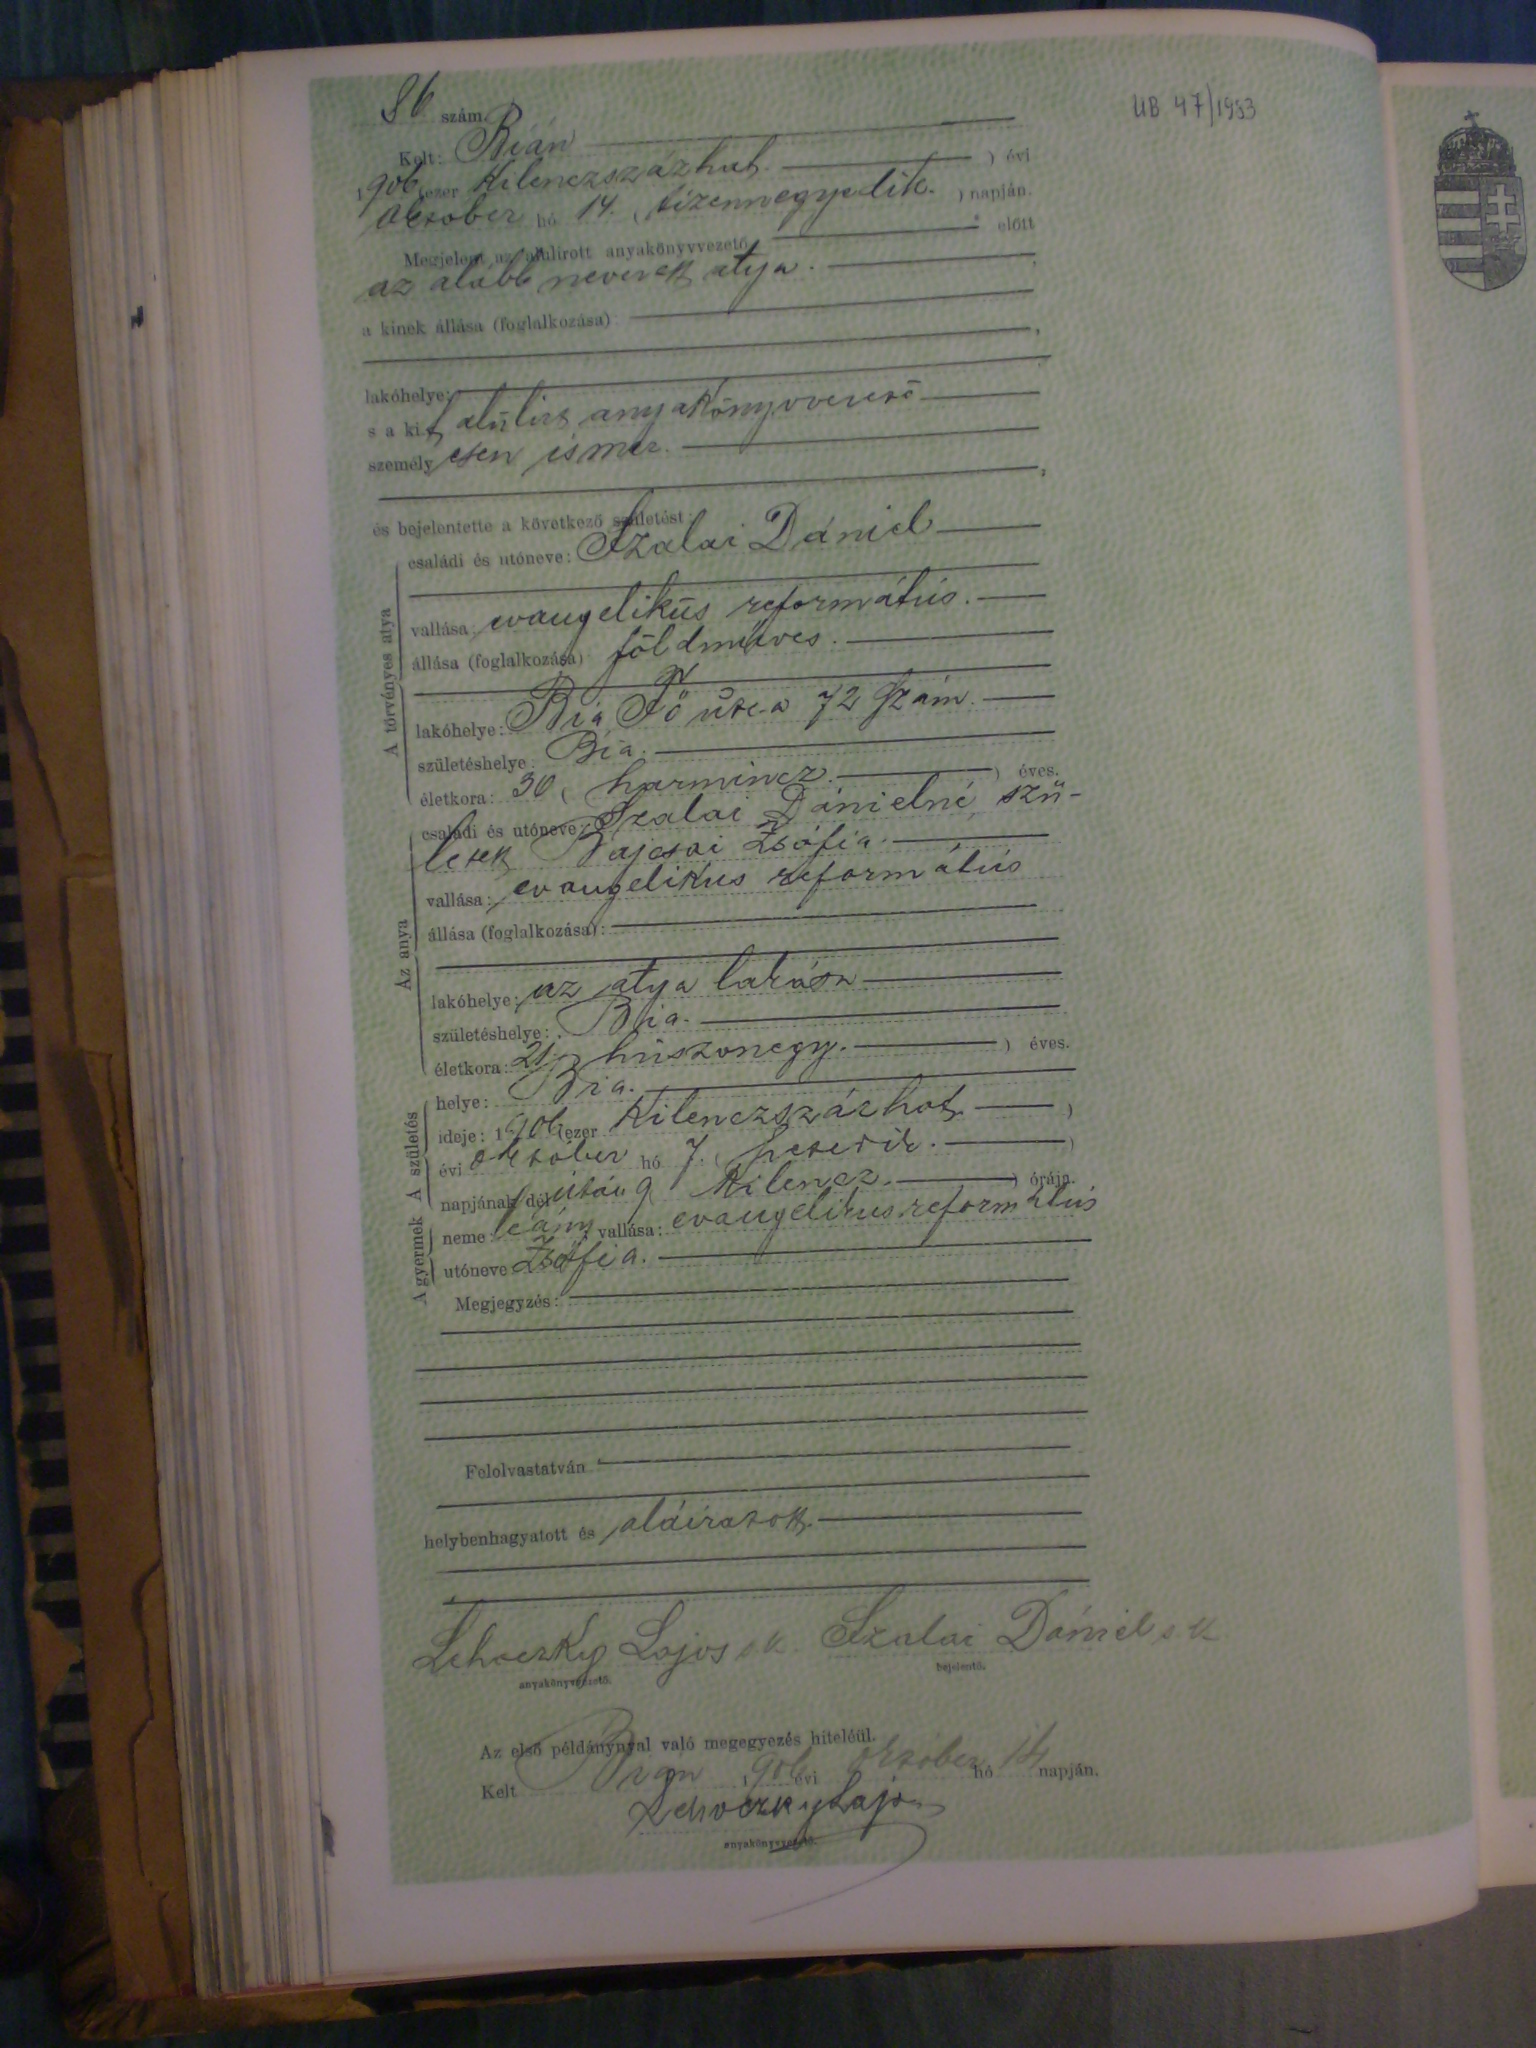 86 szám.
UB 47/1953
Kelt: Bián
1906 (ezer Kilenczszázhat. ) évi
Október hó 14. (tizennegyedik. ) napján.
Megjelent az alulírott anyakönyvvezető előtt
az alább nevezett atya.
a kinek állása (foglalkozása)
lakóhelye:
s a kit alulirt anyakönyvvezető
személyesen ismer.
és bejelentette a következő születést:
A törvényes atya
családi és utóneve: Szalai Dániel
vallása: evangelikus református.
állása (foglalkozása) földműves.
lakóhelye: Bia Fő utca 72 szám.
születéshelye: Bia.
életkora: 30 (harmincz. ) éves.
Az anya
családi és utóneve: Szalai Dánielné szü-
letett Bajcsai Zsófia.
vallása: evangelikus református
állása (foglalkozása):
lakóhelye: az atya lakása
születéshelye: Bia.
életkora: 21 (huszonegy. ) éves.
A születés
helye: Bia.
ideje: 1906 (ezer Kilenczszázhat. )
évi október hó 7. (hetedik. )
napjának délután 9 (Kilencz. ) óráján.
A gyermek
neme: leány vallása: evangelikus református
utóneve: Zsófia.
Megjegyzés:
Felolvastatván
helybenhagyatott és aláiratott.
Lehoczky Lajos s.k. Szalai Dániel s.k.
anyakönyvvezető. bejelentő.
Az első példánynyal való megegyezés hiteléül.
Kelt Bián 1906 évi október hó 14 napján.
Lehoczky Lajos
anyakönyvvezető.